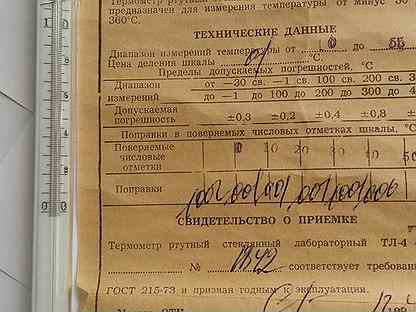 Термометр ртутный стеклянный
предназначен для измерения температуры от минус 30
360°С.
ТЕХНИЧЕСКИЕ ДАННЫЕ
Диапазон измерений температуры от 0 до 55
Цена деления шкалы 0,1 °С.
Пределы допускаемых погрешностей, °С
Диапазон от —30 св. —1 св. 100 св. 200 св. 3
измерений до —1 до 100 до 200 до 300 до
Допускаемая
погрешность ±0,3 ±0,2 ±0,4 ±0,8 ±
Поправки в поверяемых числовых отметках шкалы, °
Поверяемые 0 10 20 30 40 50
числовые
отметки
Поправки
СВИДЕТЕЛЬСТВО О ПРИЕМКЕ
Термометр ртутный стеклянный лабораторный ТЛ-4
№ 1842 соответствует требовани
ГОСТ 215-73 и признан годным к эксплуатации.